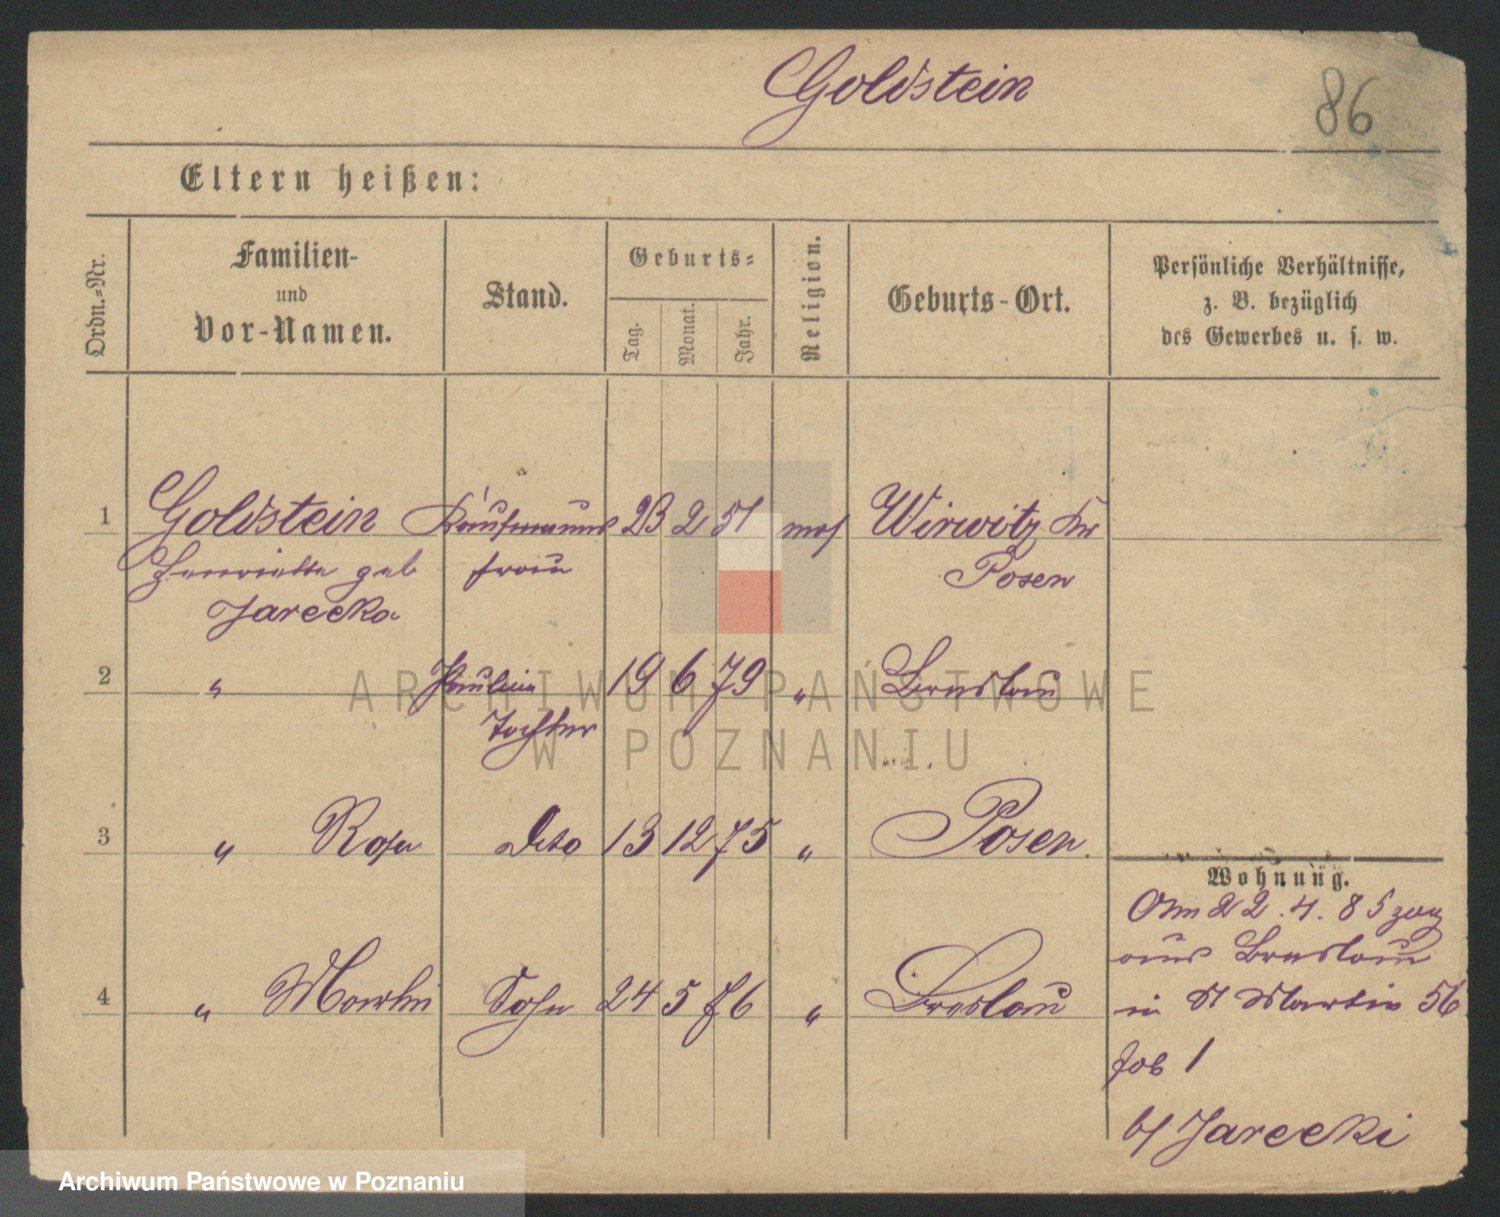 Goldstein
86
Eltern heißen:
Ordn.-Nr.
Familien-
und
Vor-Namen.
Stand.
Geburts-
Tag.
Monat.
Jahr.
Religion.
Geburts-Ort.
Persönliche Verhältnisse,
z. B. bezüglich
des Gewerbes u. s. w.
1 Goldstein Kaufmanns 23 2 51 mos Wirwitz Kr
Henriette geb frau Posen
Jarecka
2 " Pauline 19 6 79 " Breslau
Tochter
3 " Rosa Dito 13 12 75 " Posen
Wohnung.
Am 22.4.85 zog
aus Breslau
4 " Sohn 24 5 76 " Breslau
in St Martin 56
1
b/ Jarecki
ARCHIWUM PAŃSTWOWE
W POZNANIU
Archiwum Państwowe w Poznaniu